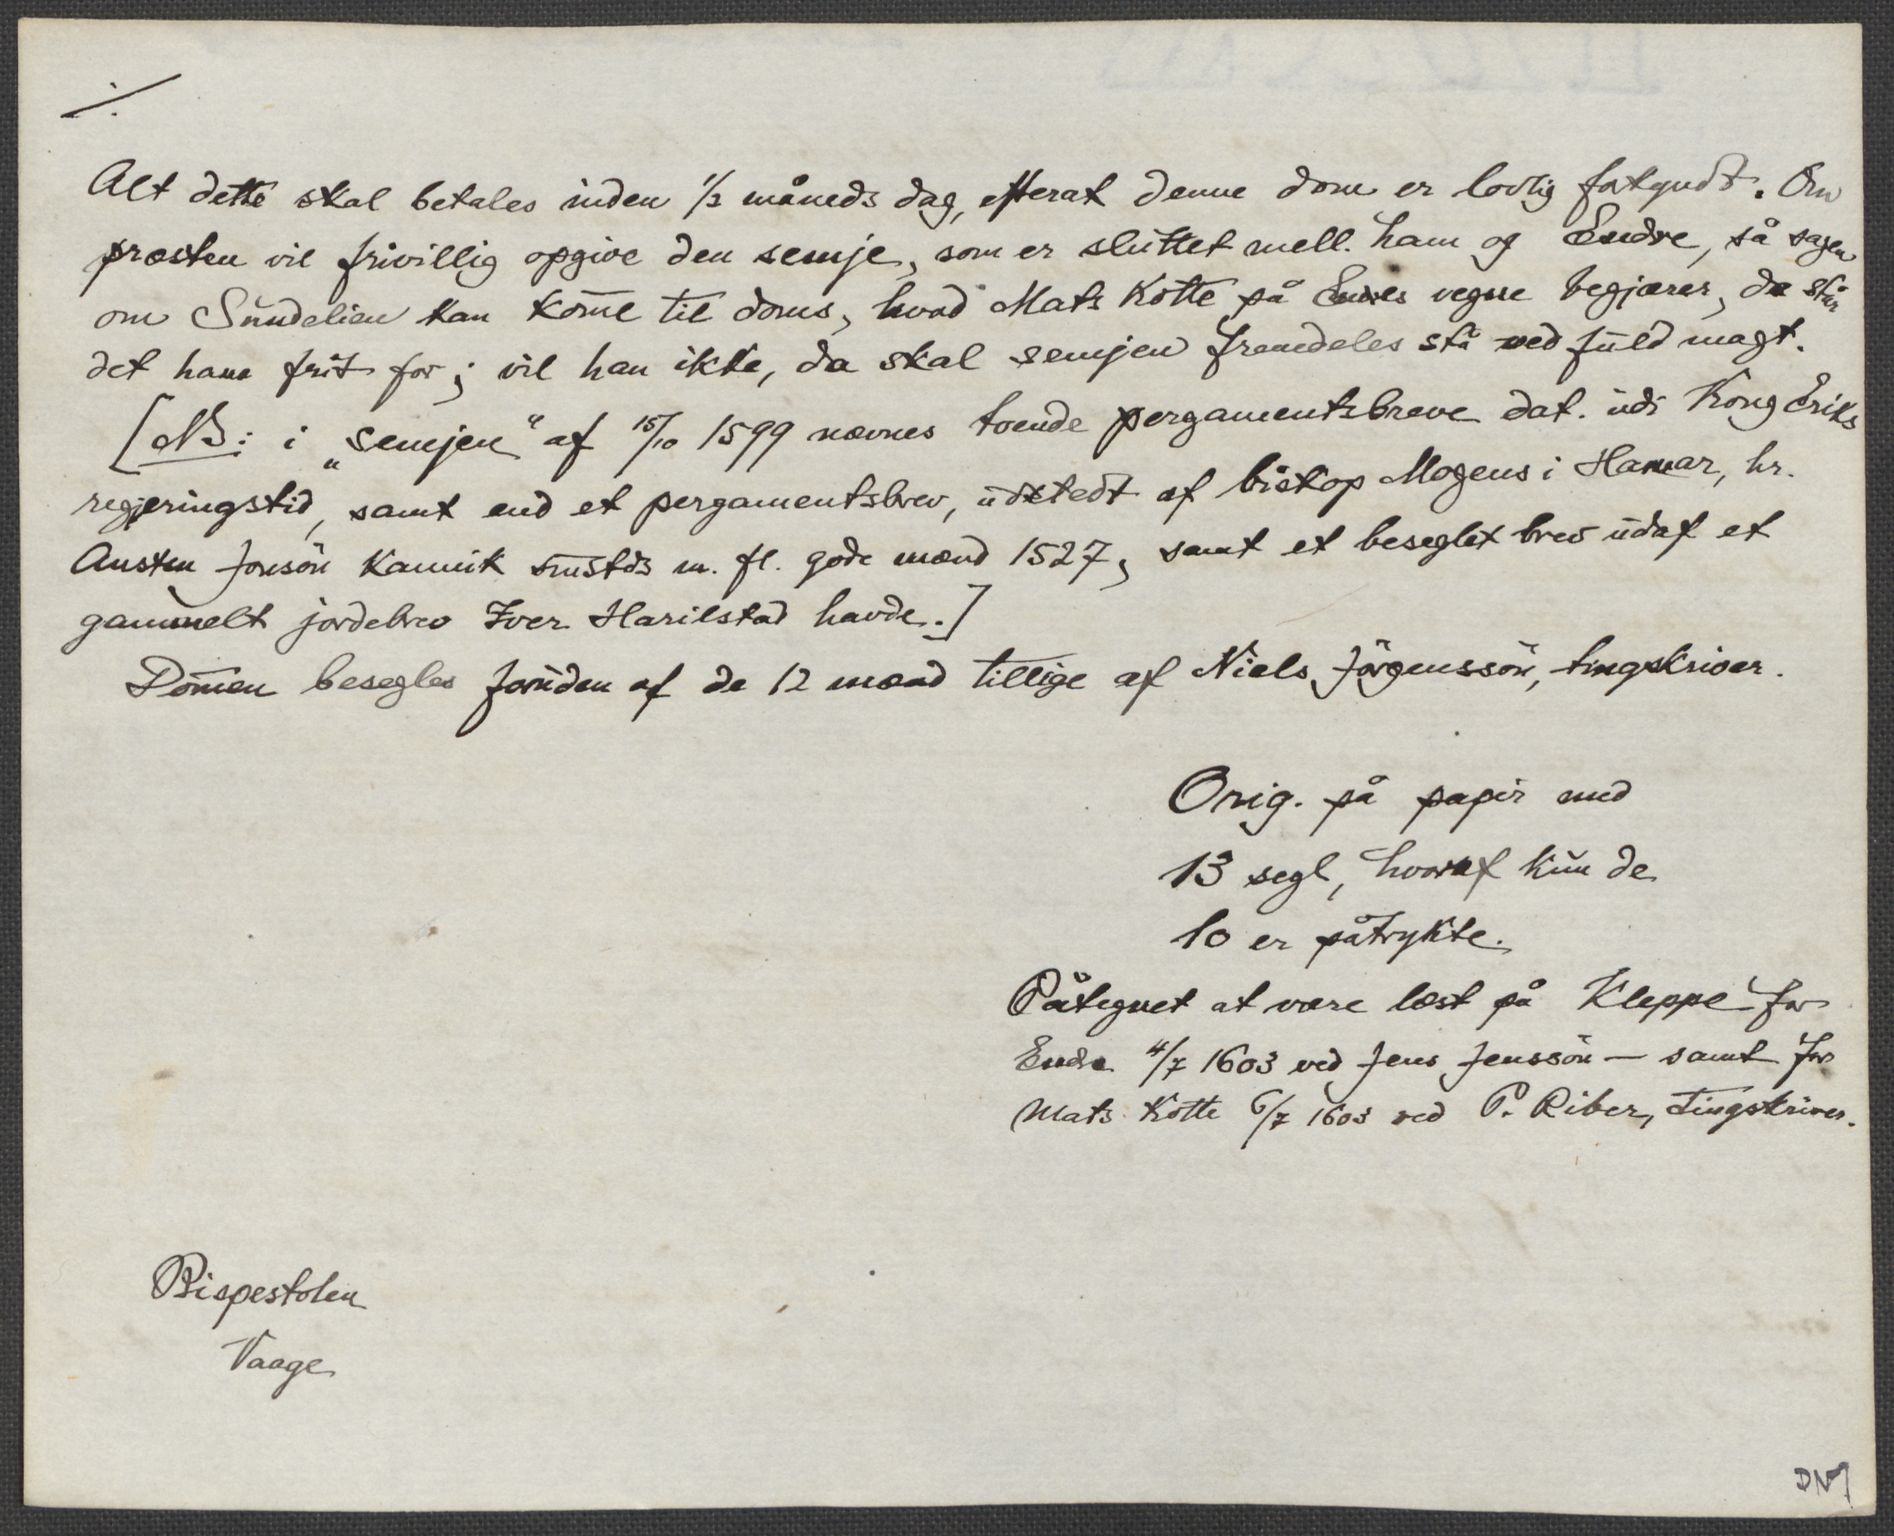 ./.
Alt dette skal betales inden 1/2 måneds dag, efterat denne dom er lovlig forkyndt. Om
præsten vil frivillig opgive den semje, som er sluttet mell. ham og Endre, så sagen
om Sundelien kan kom̄e til doms, hvad Mats Kotte på Endres vegne begjærer, da står
det ham frit for; vil han ikke, da skal semjen fremdeles stå ved fuld magt.
[NB: i „semjen“ af 15/10 1599 nævnes tvende pergamentsbreve dat. udi Kong Eriks
regjeringstid, samt end et pergamentsbrev, udstedt af biskop Mogens i Hamar, hr.
Austen Jonsön Kannik sm̄stds m. fl. gode mænd 1527, samt et beseglet brev udaf et
gammelt jordebrev Iver Harilstad havde.]
Dom̄en besegles foruden af de 12 mænd tillige af Niels Jörgenssön, tingskriver.
Orig. på papir med
13 segl, hvoraf kun de
10 er påtrykte.
Påtegnet at være læst på Kleppe for
Endre 4/7 1603 ved Jens Jenssön — samt for
Mats Kotte 6/7 1603 ved P. Riber, tingskriver.
Bispestolen
Vaage
DN